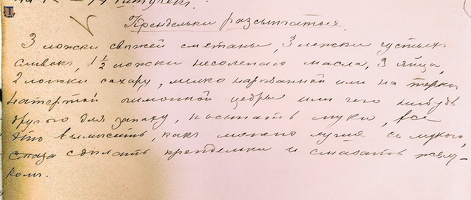 Крендельки разсыпчатыя.
3 ложки свѣжей сметаны, 3 ложки густыхъ
сливокъ, 1 ½ ложки несоленаго масла, 3 яйца,
2 ложки сахару, мелко нарѣзанной или на теркѣ
натертой лимонной цедры или чего нибудь
другого для запаху, постать муки, всё
это вымѣсить какъ можно лучше съ мукою,
сдѣлать крендельки и смазать жел-
комъ.